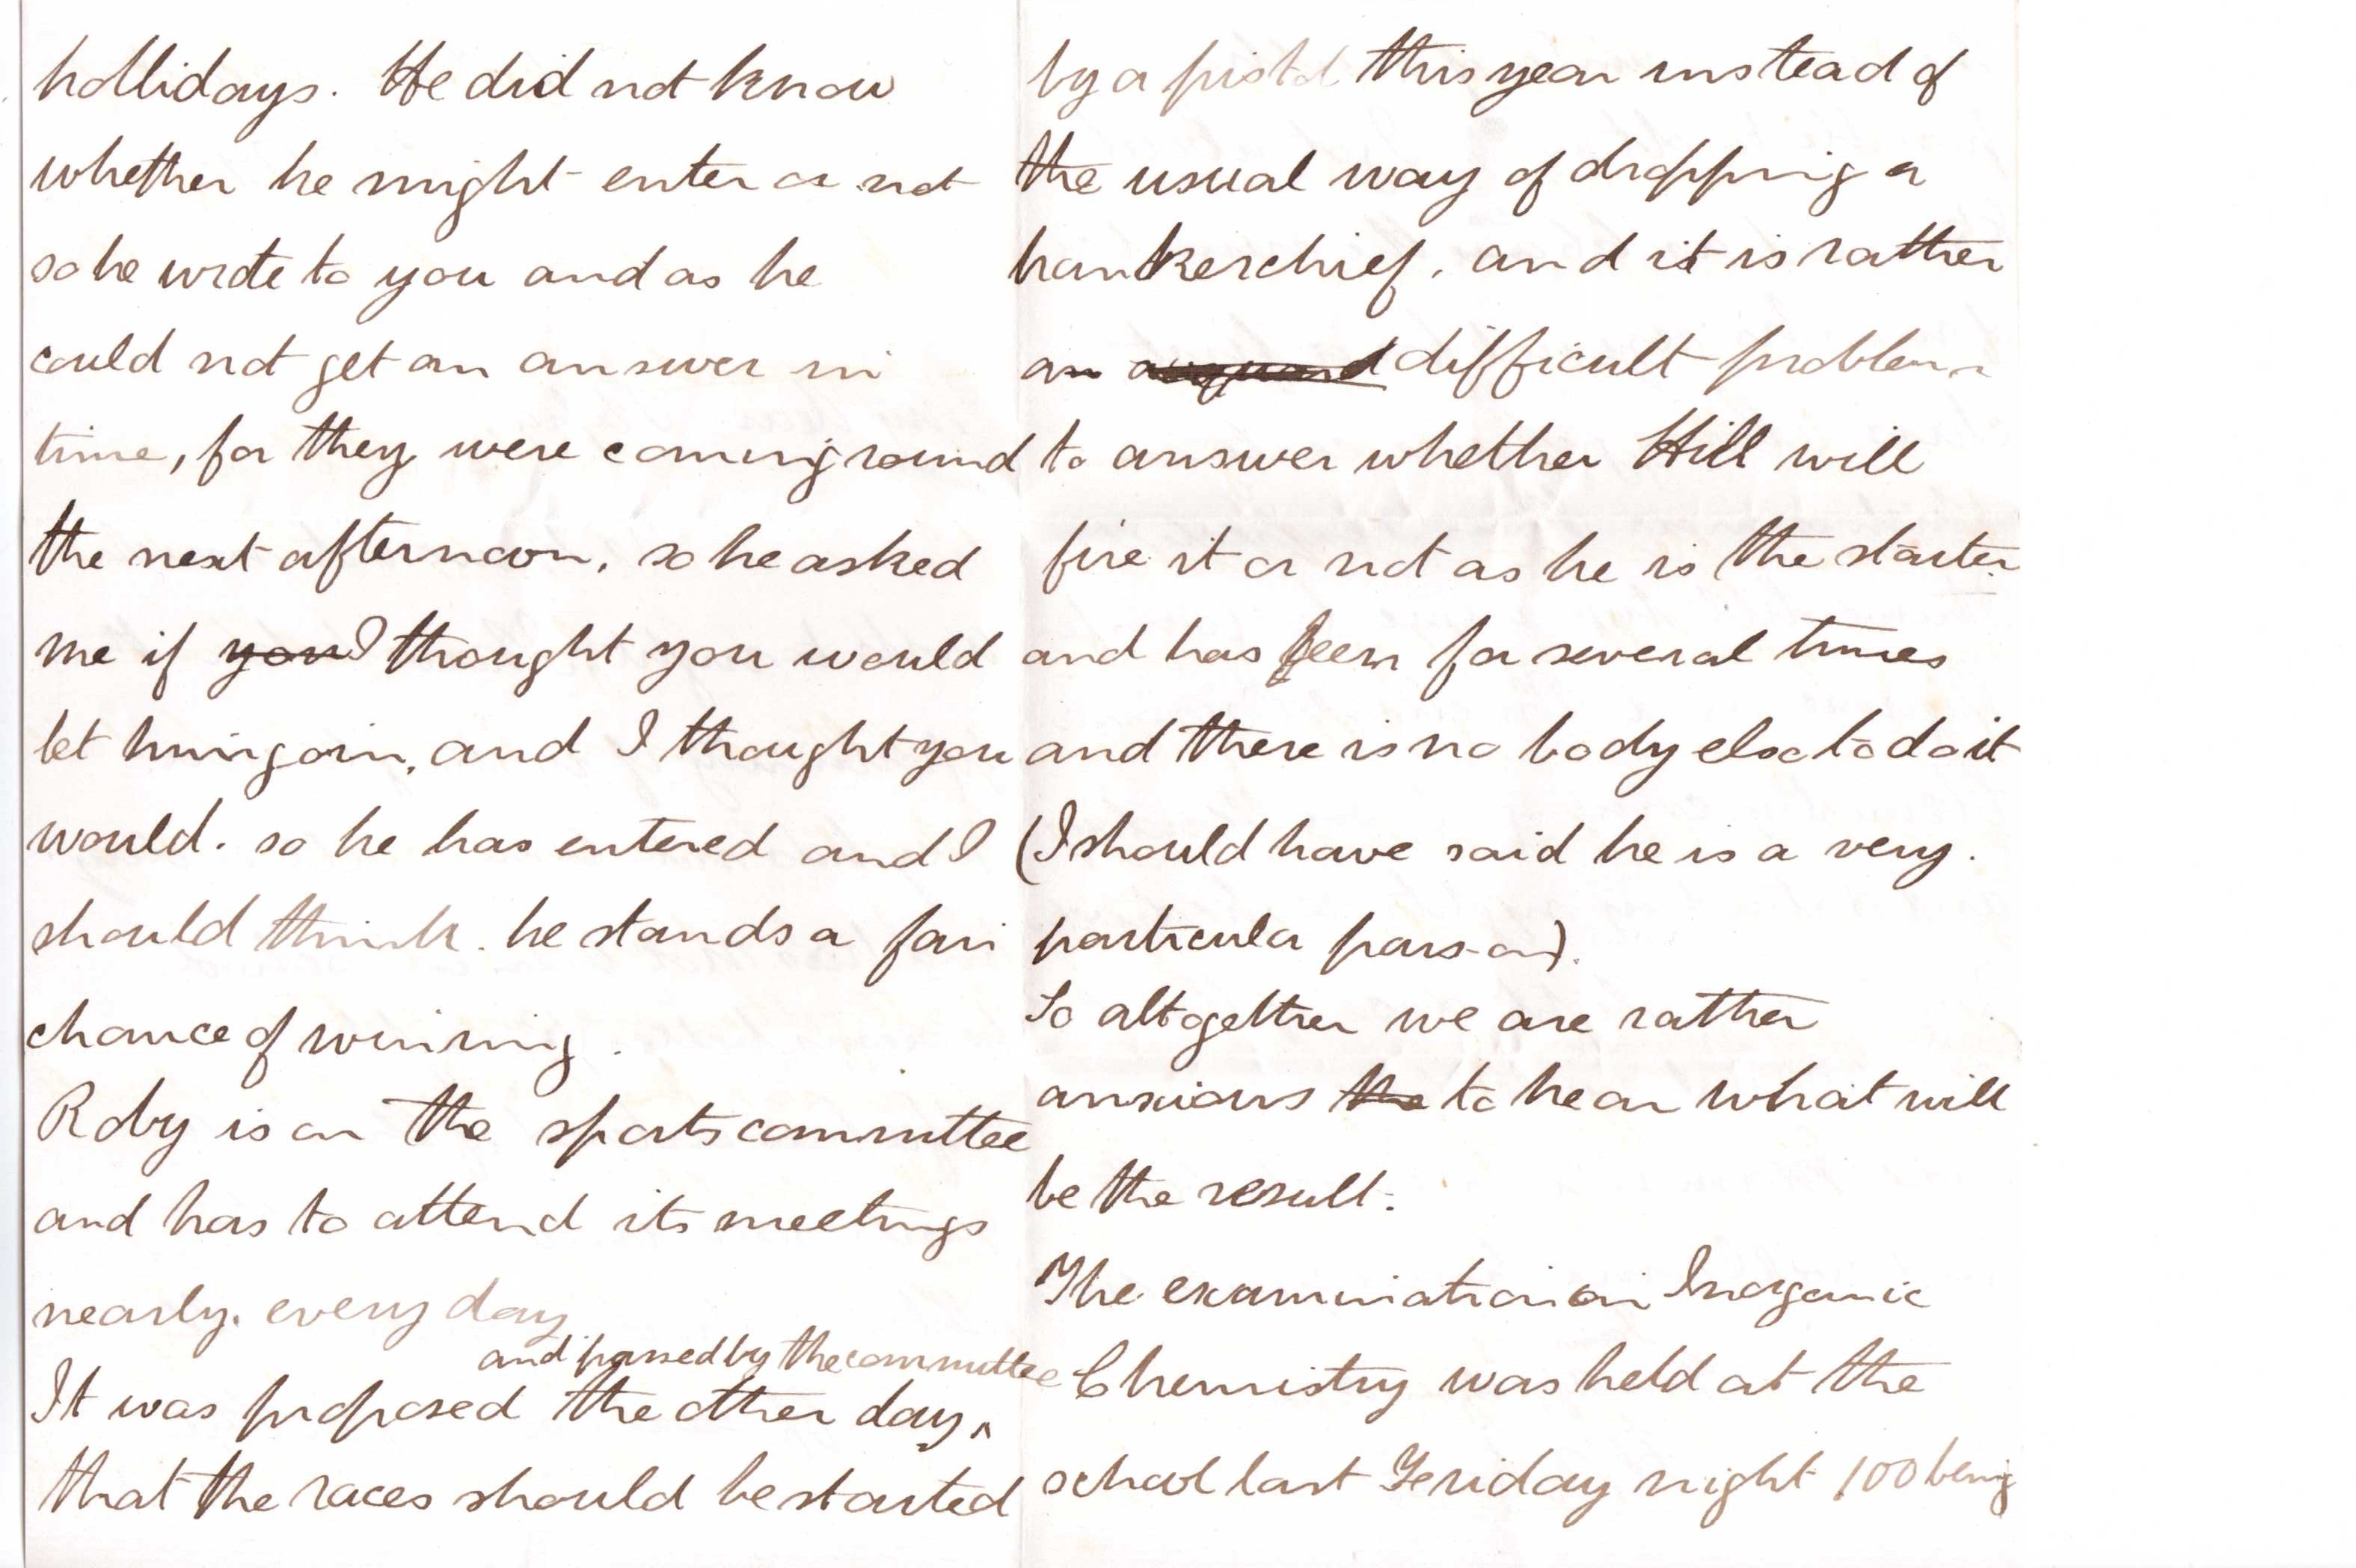 hollidays. He did not know
whether he might enter or not
so he wrote to you and as he
could not get an answer in
time, for they were coming round
the next afternoon, so he asked
me if you I thought you would
let him go in, and I thought you
would. so he has entered and I
should think. he stands a fair
chance of wining.
Roby is on the sports committee
and has to attend its meetings
nearly. every day
and passed by the committee
It was proposed the other day ^
that the races should be started
by a pistol this year instead of
the usual way of dropping a
hankerchief. and it is rather
an difficult problem
to answer whether Hill will
fire it or not as he is the starter
and has been for several times
and there is no body else to do it
(I should have said he is a very.
particular parson).
So altogether we are rather
anxious the to hear what will
be the result.
The examination in Inorganic
Chemistry was held at the
school last Friday night 100 being